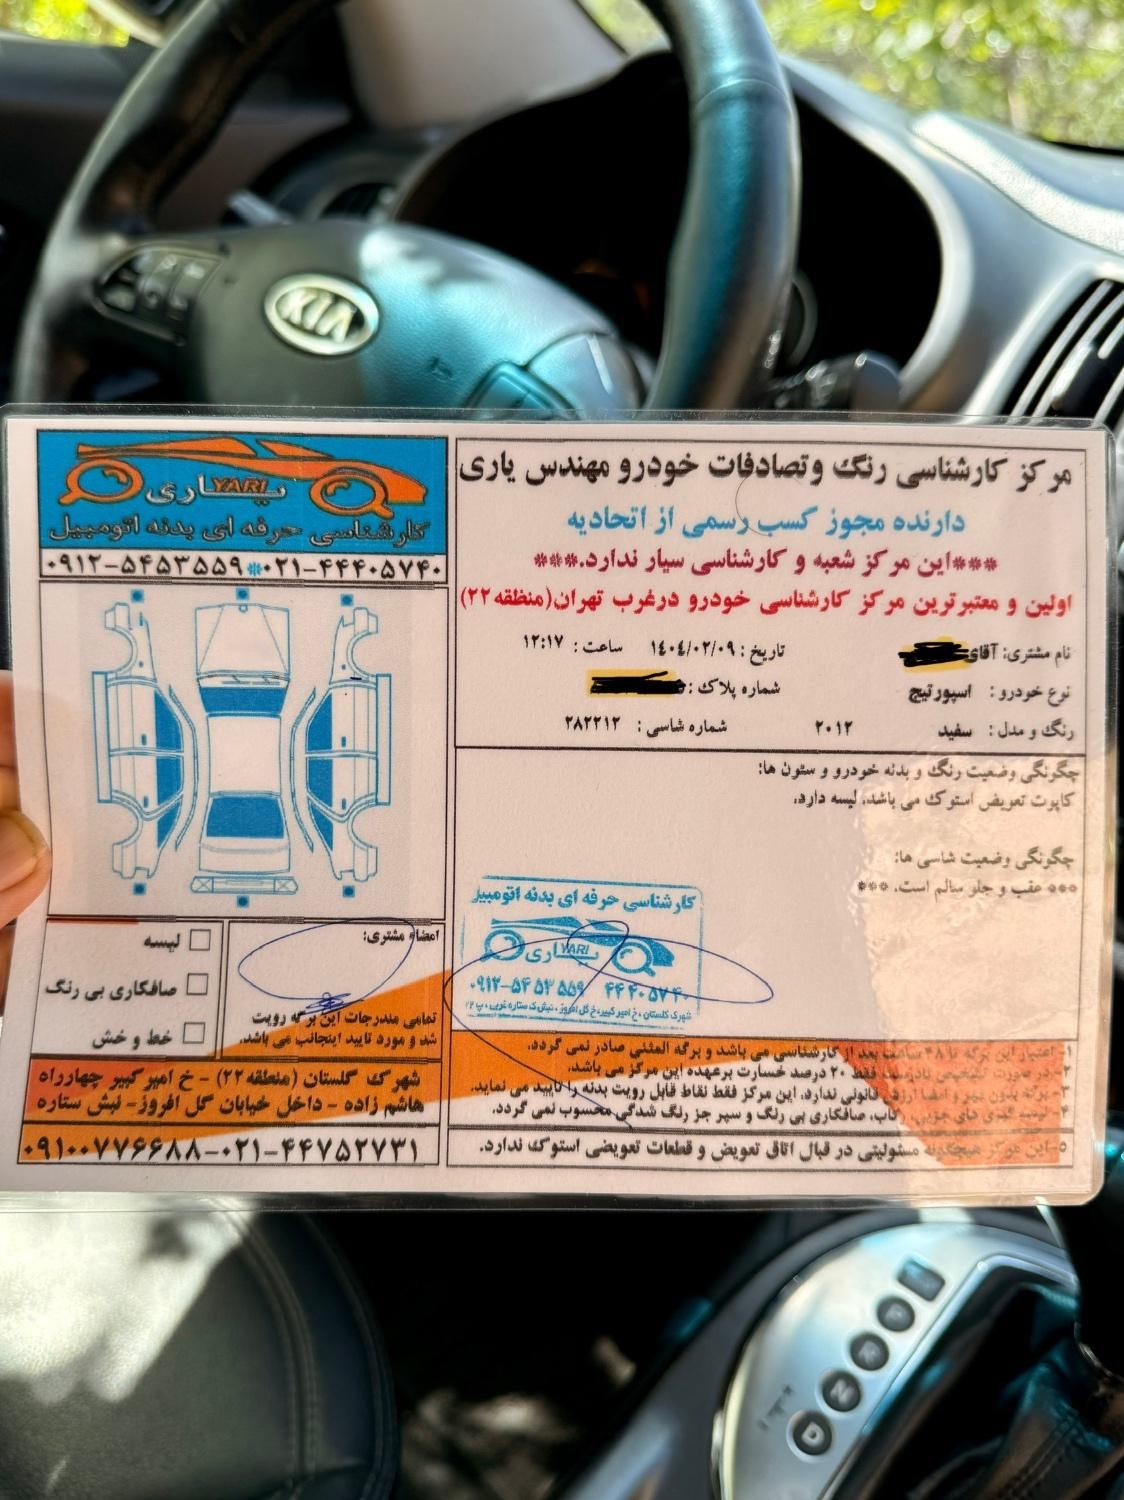 KIA
یاری
YARI
کارشناسی حرفه ای بدنه اتومبیل
۰۹۱۲-۵۴۵۳۵۵۹*۰۲۱-۴۴۴۰۵۷۴۰
مرکز کارشناسی رنگ وتصادفات خودرو مهندس یاری
دارنده مجوز کسب رسمی از اتحادیه
***این مرکز شعبه و کارشناسی سیار ندارد.***
اولین و معتبرترین مرکز کارشناسی خودرو درغرب تهران(منطقه ۲۲)
نام مشتری: آقای تاریخ : ۱۴۰۴/۰۲/۰۹ ساعت : ۱۲:۱۷
نوع خودرو : اسپورتیج شماره پلاک :
رنگ و مدل : سفید ۲۰۱۲ شماره شاسی : ۲۸۲۲۱۲
چگونگی وضعیت رنگ و بدنه خودرو و ستون ها:
کاپوت تعویض استوک می باشد. لیسه دارد.
چگونگی وضعیت شاسی ها:
*** عقب و جلو سالم است. ***
کارشناسی حرفه ای بدنه اتومبیل
یاری
YARI
۰۹۱۲-۵۴۵۳۵۵۹ ۴۴۴۰۵۷۴۰
شهرک گلستان، خ امیر کبیر، خ گل افروز، نبش ک ستاره غربی، پ ۲۲
لیسه
صافکاری بی رنگ
خط و خش
امضاء مشتری:
تمامی مندرجات این برگه رویت
شد و مورد تایید اینجانب می باشد.
شهرک گلستان (منطقه ۲۲) - خ امیر کبیر چهارراه
هاشم زاده - داخل خیابان گل افروز- نبش ستاره
۰۹۱۰۰۷۷۶۶۸۸-۰۲۱-۴۴۷۵۲۷۳۱
۱- اعتبار این برگه تا ۴۸ ساعت بعد از کارشناسی می باشد و برگه المثنی صادر نمی گردد.
۲- در صورت تشخیص نادرست فقط ۲۰ درصد خسارت برعهده این مرکز می باشد.
۳- برگه بدون مهر و امضا ارزش قانونی ندارد. این مرکز فقط نقاط قابل رویت بدنه را تایید می نماید.
۴- رکاب، صافکاری بی رنگ و سپر جز رنگ شدگی محسوب نمی گردد.
۵- این مرکز هیچگونه مسئولیتی در قبال اتاق تعویض و قطعات تعویضی استوک ندارد.
R
N
D